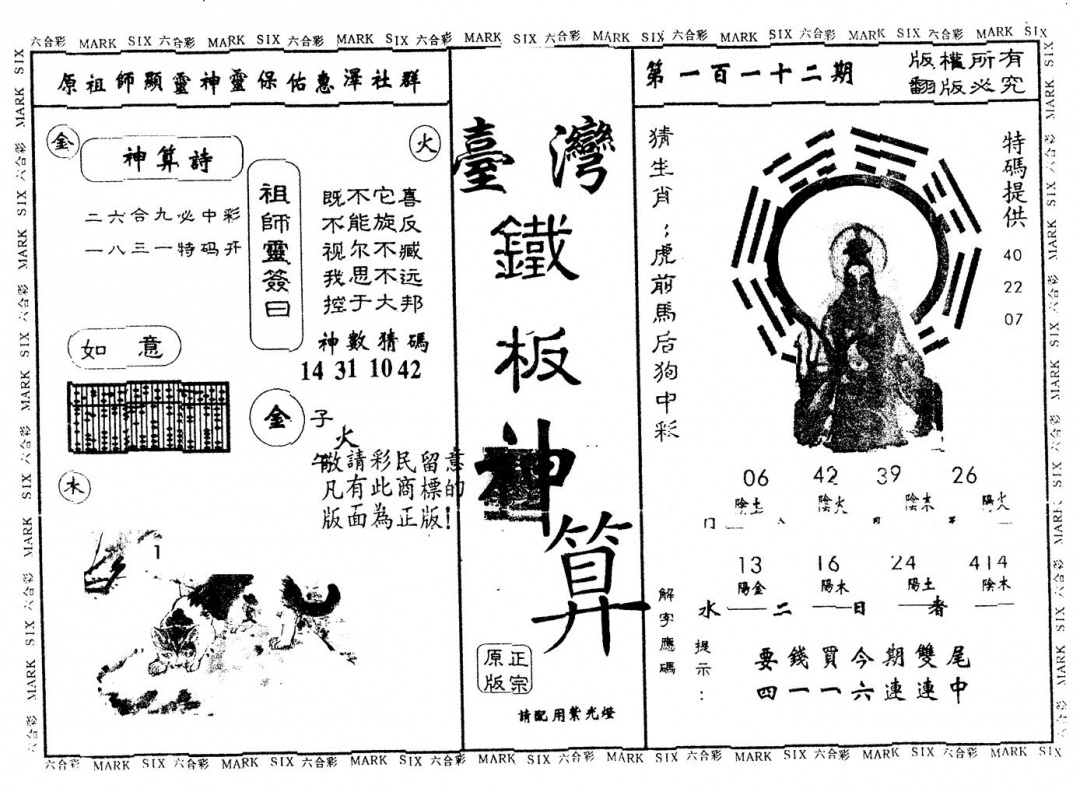 六合彩 MARK SIX 六合彩 MARK SIX 六合彩 MARK SIX 六合彩 MARK SIX 六合彩 MARK SIX 六合彩 MARK SIX 六合彩 MARK SIX 六合彩 MARK SIX
原祖師顯靈神靈保佑惠澤社群
金
火
神算詩
二六合九必中彩
一八三一特码开
祖師靈簽曰
既不它喜
不能旋反
视尔不臧
我思不远
控于大邦
神數猜碼
14 31 10 42
如意
金
子
火
午
敬請彩民留意
凡有此商標的
版面為正版!
水
1
臺灣
鐵板神算
正宗原版
請配用紫光燈
第一百一十二期
版權所有
翻版必究
猜生肖;虎前馬后狗中彩
特碼提供
40
22
07
06 42 39 26
陰土 陰火 陰木 陽火
13 16 24 414
陽金 陽木 陽土 陰木
水 二 日 者
解字應碼
提示:
要錢買今期雙尾
四一一六連連中
六合彩 MARK SIX 六合彩 MARK SIX 六合彩 MARK SIX 六合彩 MARK SIX 六合彩 MARK SIX 六合彩 MARK SIX 六合彩 MARK SIX 六合彩 MARK SIX